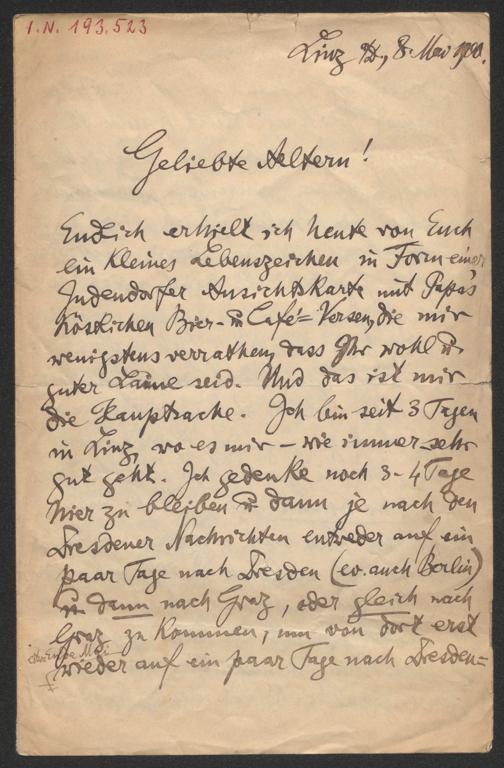 I.N. 193.523
Linz a/D., 8. Mai 1900.
Geliebte Aeltern!
Endlich erhielt ich heute von Euch
ein kleines Lebenszeichen in Form einer
Judendorfer Ansichtskarte mit Papa's
köstlichen Bier- u Café-Versen, die mir
wenigstens verrathen, dass Ihr wohl u.
guter Laune seid. Und das ist mir
die Hauptsache. Ich bin seit 3 Tagen
in Linz, wo es mir – wie immer sehr
gut geht. Ich gedenke noch 3-4 Tage
hier zu bleiben u dann je nach den
Dresdener Nachrichten entweder auf ein
paar Tage nach Dresden (ev. auch Berlin)
u dann nach Graz, oder gleich nach
Graz zu kommen, um von dort erst
Ende Mai
wieder auf ein paar Tage nach Dresden=